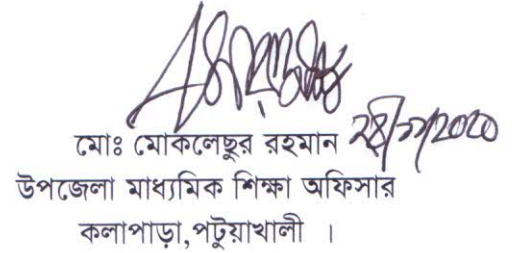 মোঃ মোকলেছুর রহমান
উপজেলা মাধ্যমিক শিক্ষা অফিসার
কলাপাড়া,পটুয়াখালী ।